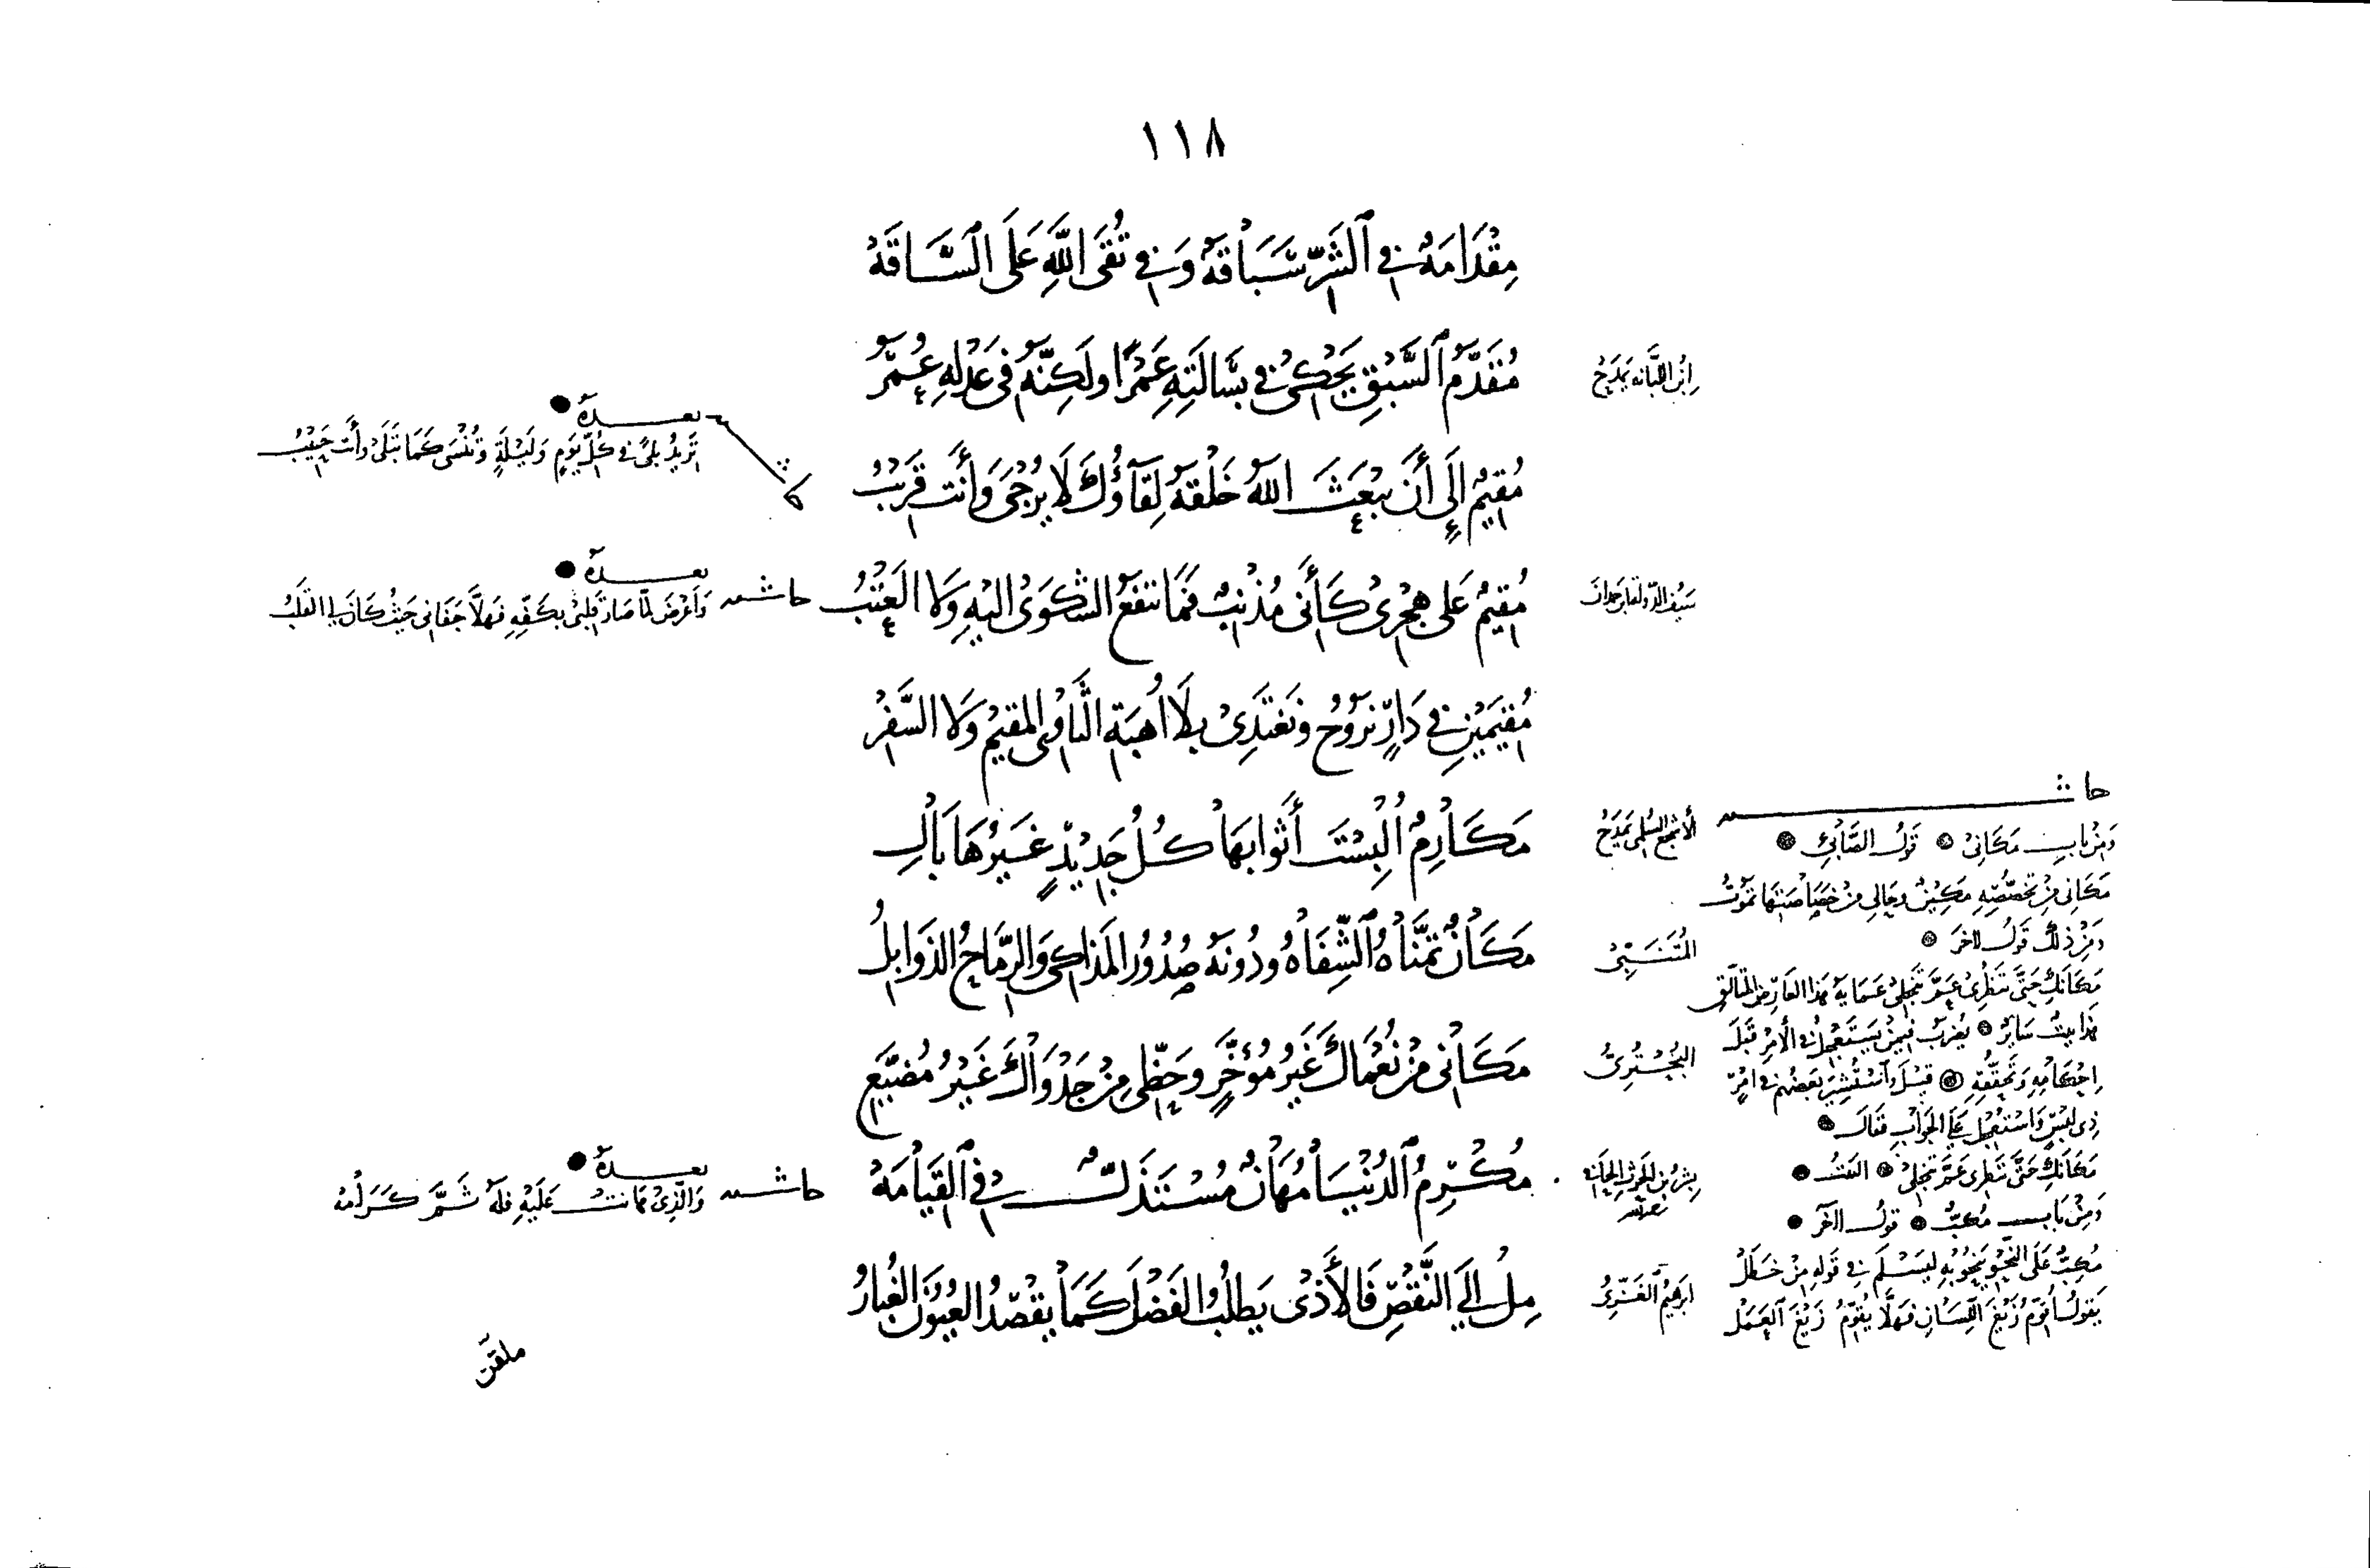 ١١٨
مِقْدَامَةٌ فِي ٱلشَّرِّ سَبَّاقَةٌ وَفِي تُقَى اللَّهِ عَلَى السَّاقَهْ
ابْنُ اللَّبَّانَه يَمْدَحُ
مُقَدَّمُ ٱلسَّبْقِ يَحْكِي فِي بَسَالَتِهِ عَمْرًا ولَكِنَّهُ فِى عَدْلِهِ عُمَرُ
مُقِيمٌ إِلَى أَن يَبْعَثَ اللَّهُ خَلْقَهُ لِقَآؤُكَ لَا يُرْجَى وَأَنْتَ قَرِيْبُ
بعـــده
تَزِيْدُ بِلىً فِي كُلِّ يَوْمٍ وَلَيْلَةٍ وتُنْسَى كَمَا تَبْلَى وأَنت حَبِيْبُ
سَيْفُ الدَّوْلَةِ بن حَمْدَانَ
مُقِيْمٌ عَلَى هَجْرِى كَأَنِّى مُذْنِبٌ فَمَا تنفَعُ الشَّكْوَى إليْهِ وَلَا العَتْبُ
حاشـــية
بعـــده
وَأَعْرَضَ لمَّا صَارَ قَلْبِى بِكَفِّهِ فَهَلَّا جَفَانِى حَيْثُ كَانَ لِي القَلْبُ
مُقِيْمَيْنِ فِي دَارٍ نَرُوْحُ وَنَغْتَدِى بِلَا أُهْبَةِ الثَّاوِى المقيْمِ وَلَا السَّفْرِ
الأشْجَعُ السُّلَمِىُّ يَمْدَحُ
مَكَارِمٌ أُلْبِسْتَ أَثْوابَهَا كُلُّ جَدِيْدٍ غَيْرُهَا بَالِ
المُتَنَبِّى
مَكَانٌ تَمَنَّاهُ ٱلشِّفَاهُ ودُونَهُ صُدُوْرُ المَذَاكِى وَالرِّمَاحُ الذَوَابِلُ
البُحْتُرِىُّ
مَكَانِى مِنْ نُعْمَاكَ غَيْرُ مُؤَخَّرٍ وحَظِّى مِنْ جَدْوَاكَ غَيْرُ مُضَيَّعِ
مُكْرِمُ ٱلدُنْيَا مُهَانٌ مُسْتَذَلٌّ فِي ٱلقِيَامَهْ
حاشـــية
بعـــده
وَالَّذِى هَانتْ عَلَيْهِ فلَهُ ثَمَّ كَرَامَهْ
ابرهيْمُ الغَزِّىُّ
مِلْ إِلَى النَّقْصِ فَالأَذَى يَطلُبُ الفَضْلَ كَمَا يقْصدُ العُيُوْنَ الغُبارُ
حاشـــية
وَمِنْ بابِ مَكَانِىْ قَوْلُ الصَّابِىِ
وَمِنْ ذلكَ قَوْلُ الآخَرِ
مَكَانَكِ حَتَّى تَنْظُرِى عَمَّ تَنْجَلِى عَمَايَةُ هَذا العَارِضِ المتَأَلِّقِ
هَذا بيتٌ سَائِرٌ يُضرَبُ فيمَنْ يَسْتَعْجِلُ فِي الأَمْرِ قَبْلَ
إحْكَامِهِ وَتَحَقُّقِهِ قيْلَ وَٱسْتُشِيْرَ بَعْضُهُم فِي امْرٍ
ذِى لَبْسٍ وَاسْتُعْجِلَ عَلَى الجَوَابِ فَقَالَ
مَكَانَكِ حَتَّى تَنْظُرِى عَمَّ تَنْجَلِى البَيْتُ
وَمِنْ بَابِ مُكِبٌّ قولُ الآخَرِ
مُكِبٌّ عَلَى النَّحْوِ يَنْحُو بِهِ لِيَسْلَمَ فِي قَوْلِهِ مِنْ خَطَلْ
يَقولُ أُقَوِّمُ زَيْغَ اللِّسَانِ فَهَلَّا يُقَوِّمُ زَيْغَ ٱلعَمَلْ